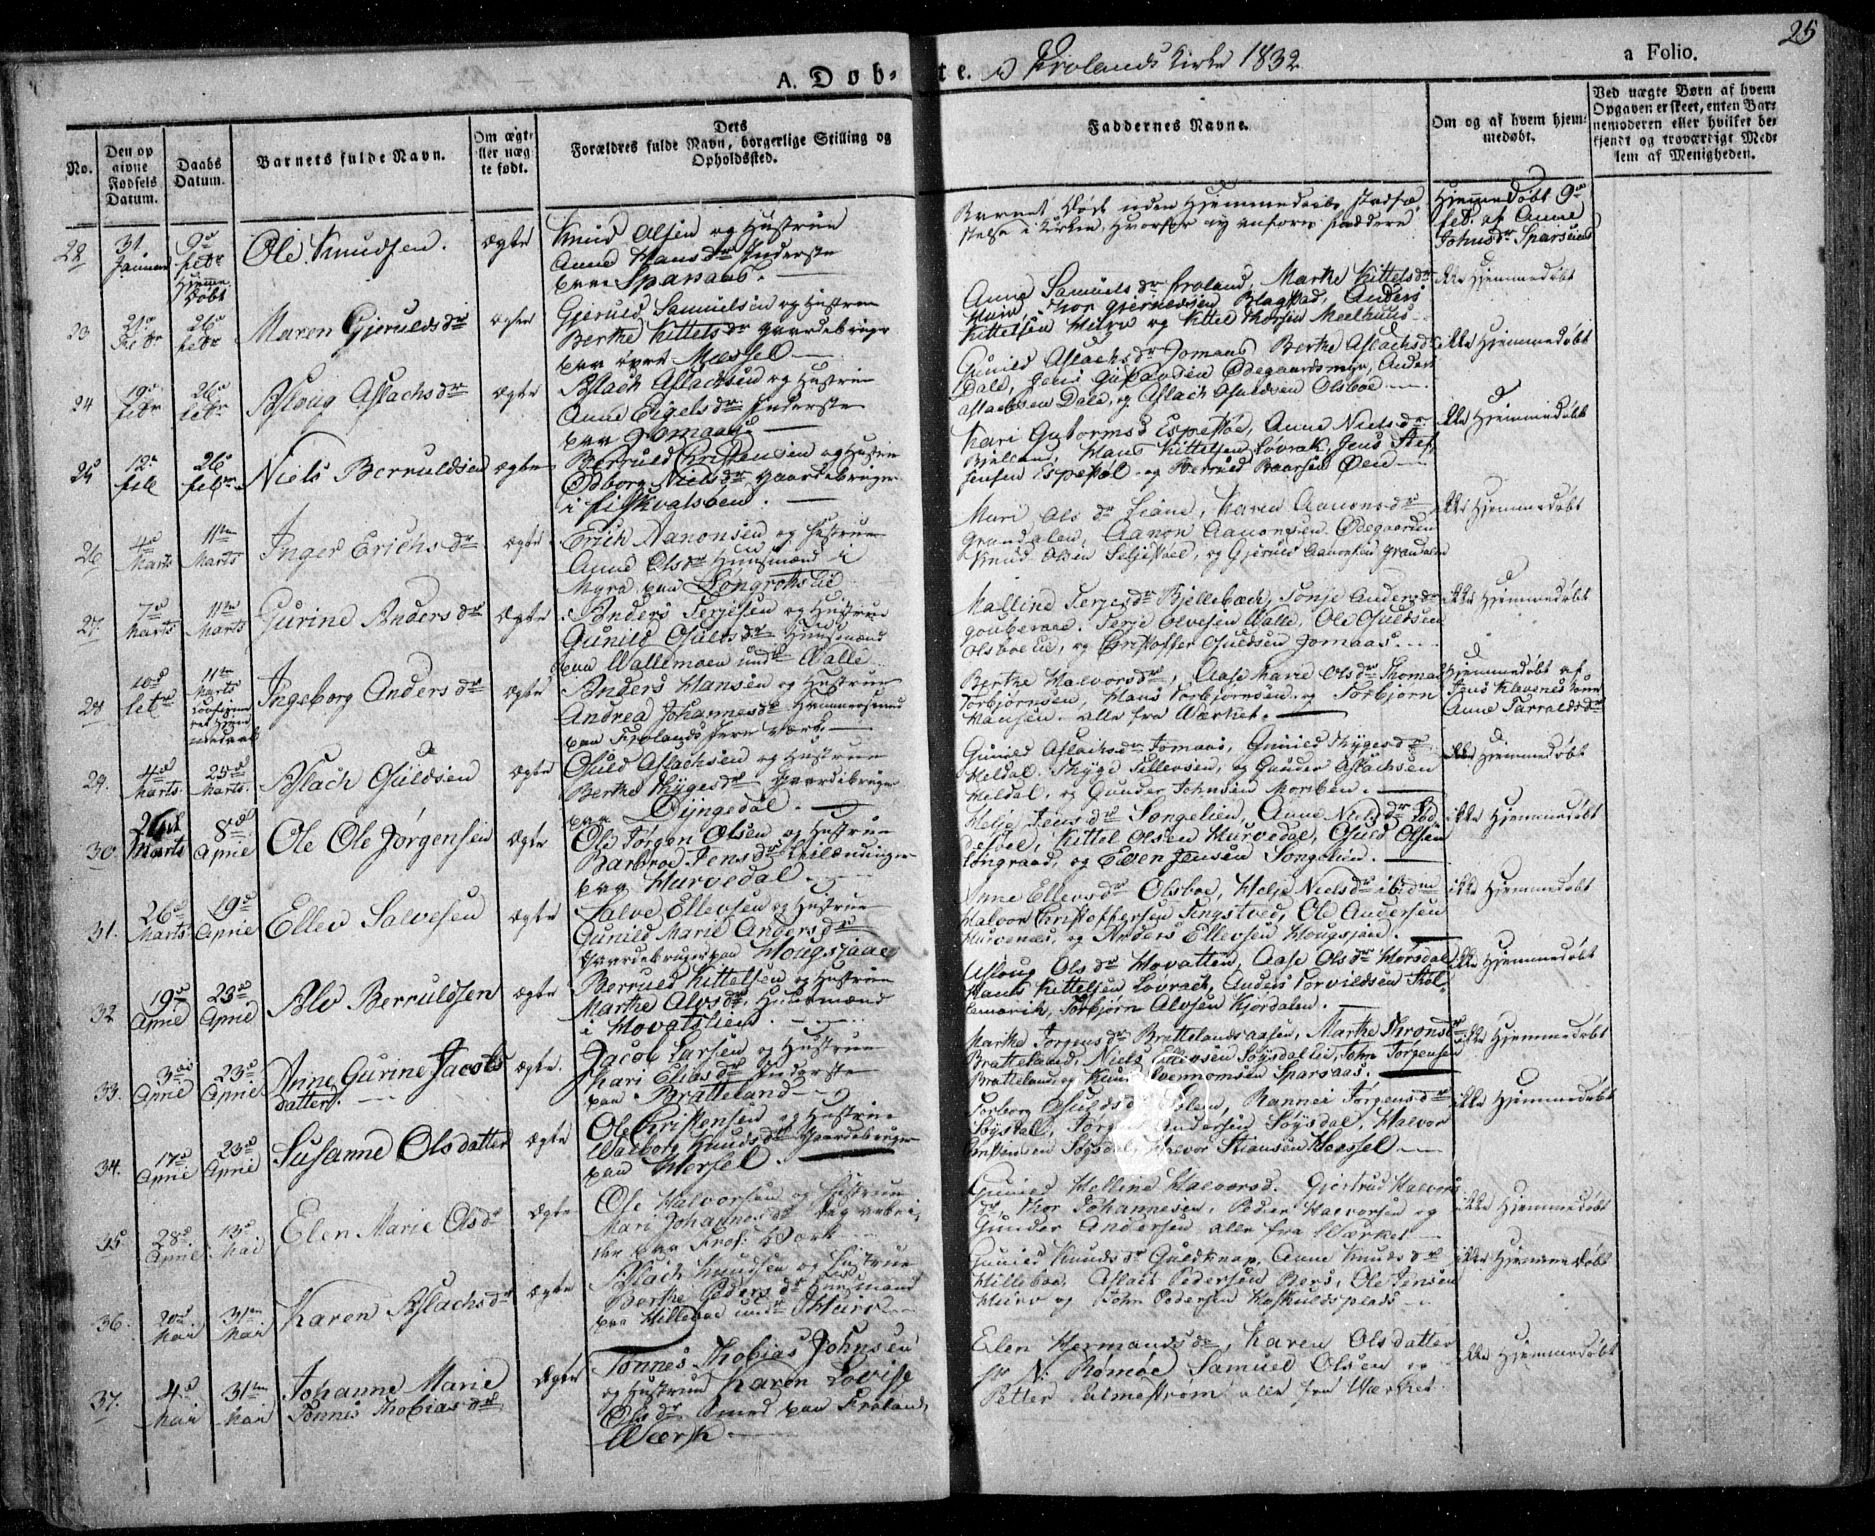 25
A. Døbte. i Frolands Kirke 1832
a Folio.
No.
Den op
givne
Fødsels
Datum.
Daabs
Datum.
Barnets fulde Navn.
Om ægte
eller uæg
te født.
Dets
Forældres fulde Navn, borgerlige Stilling og
Opholdssted.
Faddernes Navne.
Om og af hvem hjem-
medøbt.
Ved uægte Børn af hvem
Opgaven er skeet, enten Bar-
nemoderen eller hvilket be-
kjendt og troværdigt Med-
lem af Menigheden.
22
31. Januar
9de Febr Hjemme Døbt
Ole Knudsen.
Ægte
Knud Olsen og Hustrue
Anne Hansdr Inderste
paa Sparsaas.
Barnet Døde uden Hjemmedaabs Stadfæ
stelse i Kirken, hvorfor ey anføres Faddere
Hjemmedøbt 9de
feb. af Anne
Johnsdr Sparsaas
23
Febr
26d febr
Maren Gjeruldsdr
ægte
Gjeruld Samuelsen og Hustrue
Berthe Kittelsdr Gaardebruger
paa Messel
Anne Samuelsdr Froland, Marthe Kittelsdr
Hurv, Thor Gjeruldsen Blagstad, Anders
Kittelsen Hurv og Kittel Thorsen Meelhuus
Ikke Hjemmedøbt
24
19d febr
26d febr
Asloug Aslachsdr
ægte
Aslach Aslachsen og Hustrue
Anne Eigelsdr Inderste
paa Jomaas.
Gunild Aslachsdr Jomaas, Berthe Aslachsdr
Dale, Jens Ødegaardsmyr, Anders
Aslachsen Dale, og Aslach Osuldsen Olsboe
Ikke Hjemmedøbt
25
12te feb
26d febr.
Niels Berruldsen
ægte
Berruld Kristensen og Hustrue
Odborg Nielsdr Gaardebruger
i
Kari Gutormsd Espestøl, Anne Nielsdr
Bjelland, Hans Kittelsen Løvrak, Jens
Jensen Espestøl og Berruld Øen
Ikke Hjemmedøbt
26
4de Marts
11te Marts
Inger Erichsdr
ægte
Erich Aanonsen og Hustrue
Anne Olsdr Huusmand i
Myra paa
Mari Olsdr Liane, Karen Aanonsdr
Grandalen, Aanon Aanonsen Ødegaarden
Knud Olsen og Gjeruld Aanonsen Grandalen
Ikke Hjemmedøbt
27
7d Marts
11te Marts
Gurine Andersdr
Ægte
Anders Terjesen og Hustrue
Gunild Osuldsdr Huusmand
paa Wallemoen undr Valle
Malline Terjesdr Bjellebæk, Tonje Andersdr
Terje Olvesen Walle, Ole Osuldsen
Olsboe Lie, og Christoffer Osuldsen Jomaas.
Ikke Hjemmedøbt
28
10d
11te Marts
Ingeborg Andersdr
Ægte
Anders Hansen og Hustrue
Andrea Johannesdr Hammersmed
paa Frolands Jern Værk
Berthe Halvorsdr, Aase Marie Olsdr Thomas
Torbjørnsen, Hans Torbjørnsen og Torbjørn
Hansen, alle fra Værket.
Hjemmedøbt af
Jens Klavenes
Anne Tarraldsdr
29.
4d Marts
25d Marts
Aslach Osuldsen
Ægte
Osuld Aslachsen og Hustrue
Berthe Thygesdr Gaardebruger
paa Dyngedal.
Gunild Aslachsdr Jomaas, Gunild Thygesdr
Heldal, Thyge Tellevsen, og Gunder Aslachsen
Heldal, og Gunder Johnsen
Ikke Hjemmedøbt
30.
Marts
8d April
Ole Ole Jørgensen
Ægte
Ole Jørgen Olsen og Hustrue
Barbroe Jensdr
paa Hurvedal.
Helje Jensdr Songelien, Anne Nielsdr
Kittel Olsen Hurvedal, Osuld Olsen
Longraad, og Ellen Jensen Songelien.
Ikke Hjemmedøbt
31.
26d Marts
19d April
Ellev Salvesen
Ægte
Salve Ellevsen og Hustrue
Gunild Marie Andersdr
Gaardebruger paa Hougsjaae
Anne Ellevsdr Olsboe, Helje Nielsdr ibdm
Halvor Christophersen Tingstved, Ole Andersen
Hurvenæs, og Anders Ellevsen Hougsjaae.
Ikke Hjemmedøbt
32.
19d April
23d April
Alv Berruldsen
Ægte
Berruld Kittelsen og Hustrue
Marthe Alvsdr Huusmand
i Hovatslien.
Asloug Olsdr Hovatten, Aase Olsdr Morsdal
Hans Kittelsen Løvrach, Anders Torvildsen
Torbjørn Alvsen Kjørdalen.
Ikke Hjemmedøbt
33.
April
23d April
Anne Gurine Jacobs
datter.
Ægte.
Jacob Larsen og Hustrue
Kari Eliasdr Inderste
paa Bratteland
Marthe Jørgensdr Brattelandsaasen, Marthe
Bratteland, Niels Ellevsen Søysdal Lie, John Jørgensen
Bratteland og Knud Svennomsen Sparsaas.
Ikke Hjemmedøbt
34.
17d April
23d April
Susanne Olsdatter
Ægte
Ole Kristensen og Hustrue
Walborg Knudsdr Gaardebruger
paa Messel.
Torborg Osuldsd Rannei Jørgensdr
Søysdal, Andersen Søysdal, Halvor
Søysdal, Halvor Stiansen Messel
Ikke Hjemmedøbt
35
28d April
13d Mai
Elen Marie Olsdr
Ægte
Ole Halvorsen og Hustrue
Mari Johannesdr Dagarbei
der paa Frol: Værk
Gunild Helline Halvorsd. Gjertrud Halvors
dr, Thor Johannesen, Peder Halvorsen og
Gunder Andersen alle fra Værket
ikke Hjemmedøbt
36.
20d. Mai
31te Mai
Karen Aslachsdr
Ægte
Aslach Knudsen og Hustrue
Berthe Pedersdr Huusmand
paa Hilleboe undr Hurv
Gunild Knudsdr Guldknap, Anne Knudsdr
Hilleboe, Aslach Pedersen Bers, Ole Jensen
Hurv og John Pedersen Haskuldsplads
ikke Hjemmedøbt
37.
4d Mai
31te Mai
Johanne Marie
Tønnes Thobiasdr
Ægte
Tønnes Thobias Johnsen
og Hustrue Karen Lovise
Olsdr Smed paa Froland,
Værk.
Elen Hermandsdr, Karen Olsdatter
Hr N: Romøe, Samuel Olsen og
Petter Palmestrøm alle fra Værket.
Ikke Hjemmedøbt